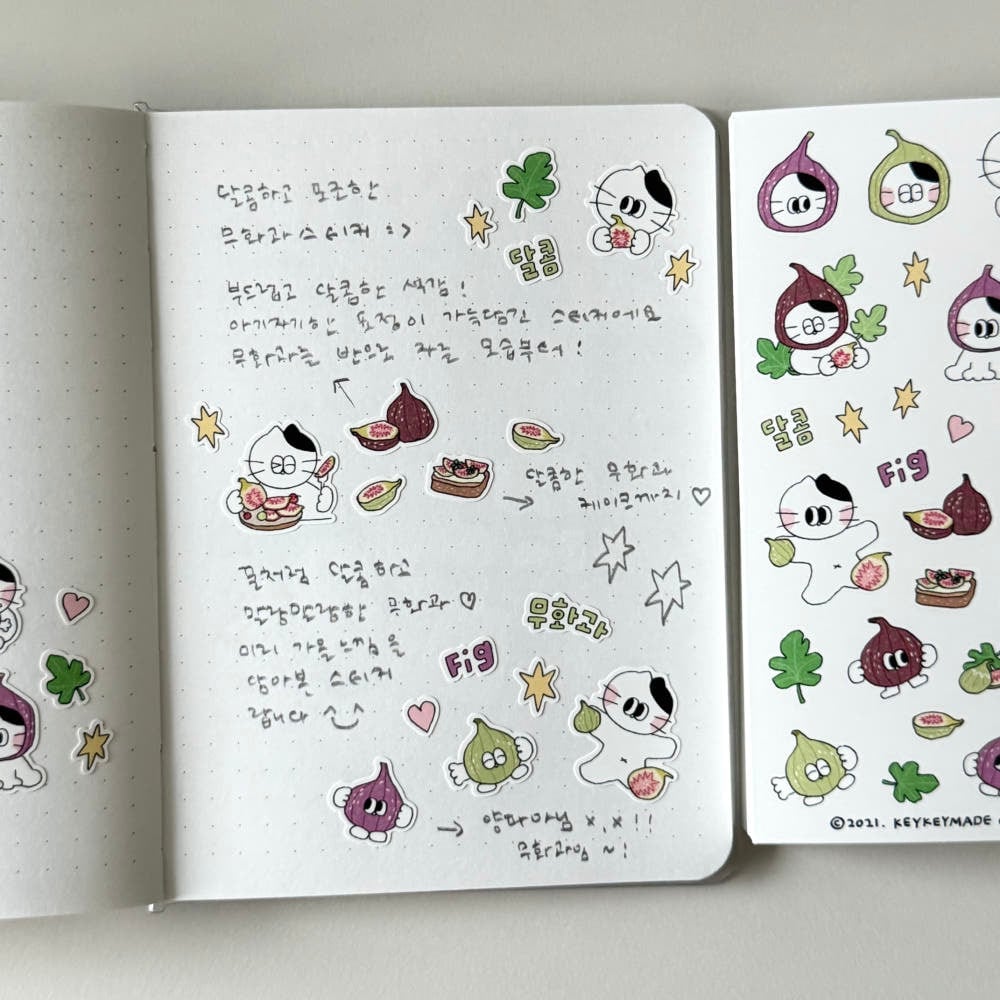 달콤하고 포근한
무화과스티커 :>
달콤
부드럽고 달콤한 색감!
아기자기한 표정이 가득담긴 스티커에요
무화과를 반으로 자른 모습부터!
달콤한 무화과
케이크까지♡
꿀처럼 달콤하고
말랑말랑한 무화과♡
미리 가을느낌을
담아본 스티커
랍니다 ^_^
무화과
Fig
양파아님 x.x!!
무화과임~!
달콤
Fig
©2021. KEYKEYMADE